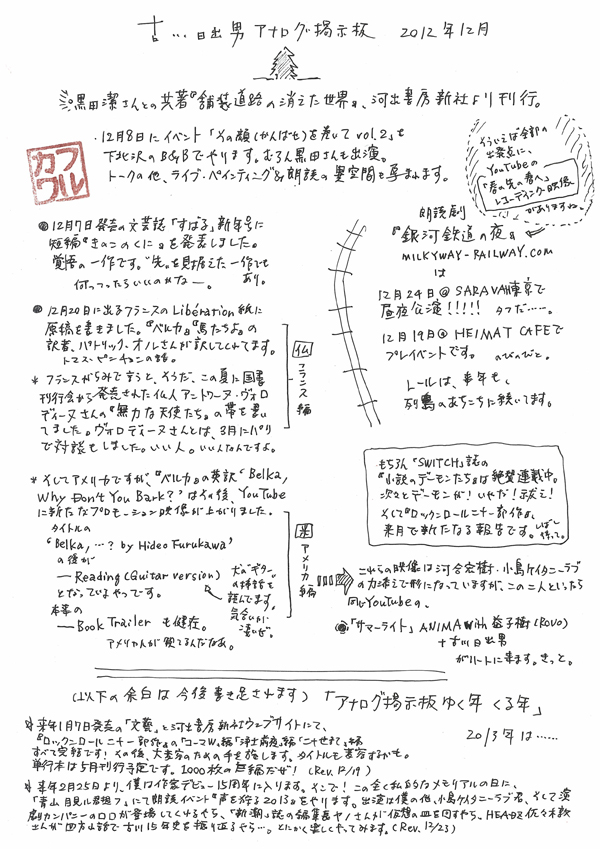 古…日出男 アナログ掲示板 2012年12月
黒田潔さんとの共著『舗装道路の消えた世界』、河出書房新社より刊行。
・12月8日にイベント「その顔(かんばせ)を差して vol.2」を
下北沢のB&Bでやります。むろん黒田さんも出演。
トークの他、ライブ・ペインティング&朗読の異空間を孕まれます。
フル
カワ
そういえば全部の
出発点に、
YouTubeの
「春の先の春へ」
レコーディング映像
がありますね。
◎12月7日発売の文芸誌「すばる」新年号に
短編『きのこのくに』を発表しました。
覚悟の一作です。“先”を見据えた一作でも
あり。
何つったらいいのかなー。
朗読劇
『銀河鉄道の夜』
MILKYWAY-RAILWAY.COM
は
12月24日@SARAVAH東京で
昼夜公演!!!!! タフだ……。
12月19日@HEIMAT CAFEで
プレイベントです。 のびのびと。
レールは、来年も、
列島のあちこちに続いてます。
◎12月20日に出るフランスのLibération紙に
原稿を書きました。『ベルカ』『馬たちよ』の
訳者、パトリック・オノレさんが訳してくれてます。
トマス・ピンチョンの話。
仏
フランス編
* フランスがらみで言うと、そうだ、この夏に国書
刊行会から発売された仏人アントワーヌ・ヴォロ
ディーヌさんの『無力な天使たち』の帯を書い
てました。ヴォロディーヌさんとは、3月にパリ
で対談もしました。いい人。いい人なんですよ。
もちろん「SWITCH」誌の
『小説のデーモンたち』は絶賛連載中。
次々とデーモンが! いやだ! 祓え!
そして『ロックンロール二十一部作』の、
来月で新たなる報告です。しばし
待って。
* そしてアメリカですが、『ベルカ』の英訳‘Belka,
Why Don't You Bark?’はその後、YouTube
に新たなプロモーション映像が上がりました。
タイトルの
‘Belka, …? by Hideo Furukawa’
の後が
― Reading (Guitar version)
となっているやつです。
本筆の
― Book Trailer も健在。
アメリカ人が観てるんだなあ。
犬の“ギター”
の挿話を
読んでます。
気合いが
凄いぜ。
米
アメリカ編
これらの映像は河合宏樹・小島ケイタニーラブ
の力添えで形になっていますが、この二人といったら
同じYouTubeの、
◎「サマーライト」ANIMA with 益子樹(ROVO)
+古川日出男
がハートに来ます。きっと。
(以下の余白は今後書き足されます) 「アナログ掲示板ゆく年くる年」
* 来年1月7日発売の「文藝」と河出書房新社ウェブサイトにて、
2013年は……
『ロックンロール二十一部作』の「コーマW」編「浄土前夜」編「二十世紀」編
すべて完結です! その後、大変革のための手を施します。タイトルも変わるかも。
単行本は5月刊行予定です。1000枚の巨編だぜ! (Rev. 12/19)
* 来年2月25日より、僕は作家デビュー15周年に入ります。そこで! この全く私的なメモリアルの日に、
「青山 月見ル君想フ」にて朗読イベント『声を狩る2013』をやります。出演は僕の他、小島ケイタニーラブ君、そして演
劇カンパニーのロロが登場してくれるやら、「新潮」誌の編集長ヤノさんが仮想の皿を回すやら、HEADZ佐々木敦
さんが四方山話で古川15年史を振り返るやら…。とにかく楽しくやってみます。(Rev. 12/23)